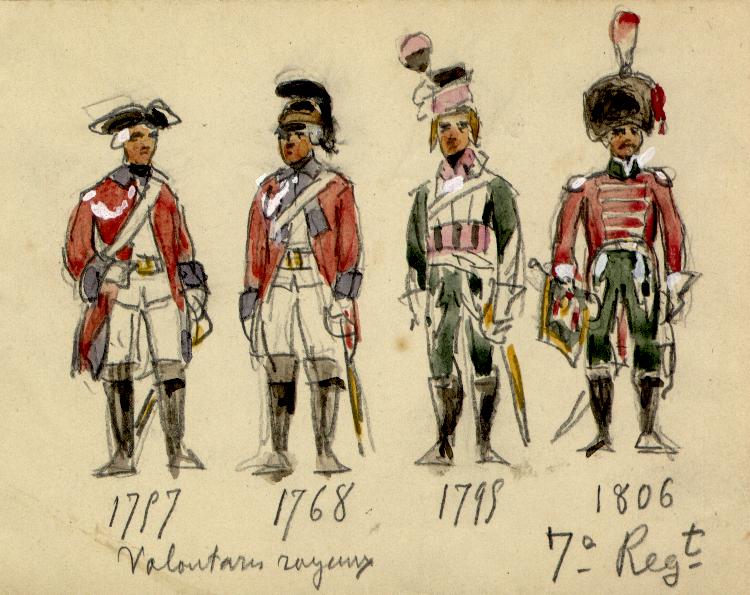 1757 1768 1795 1806
Volontaires royaux
7º Regt